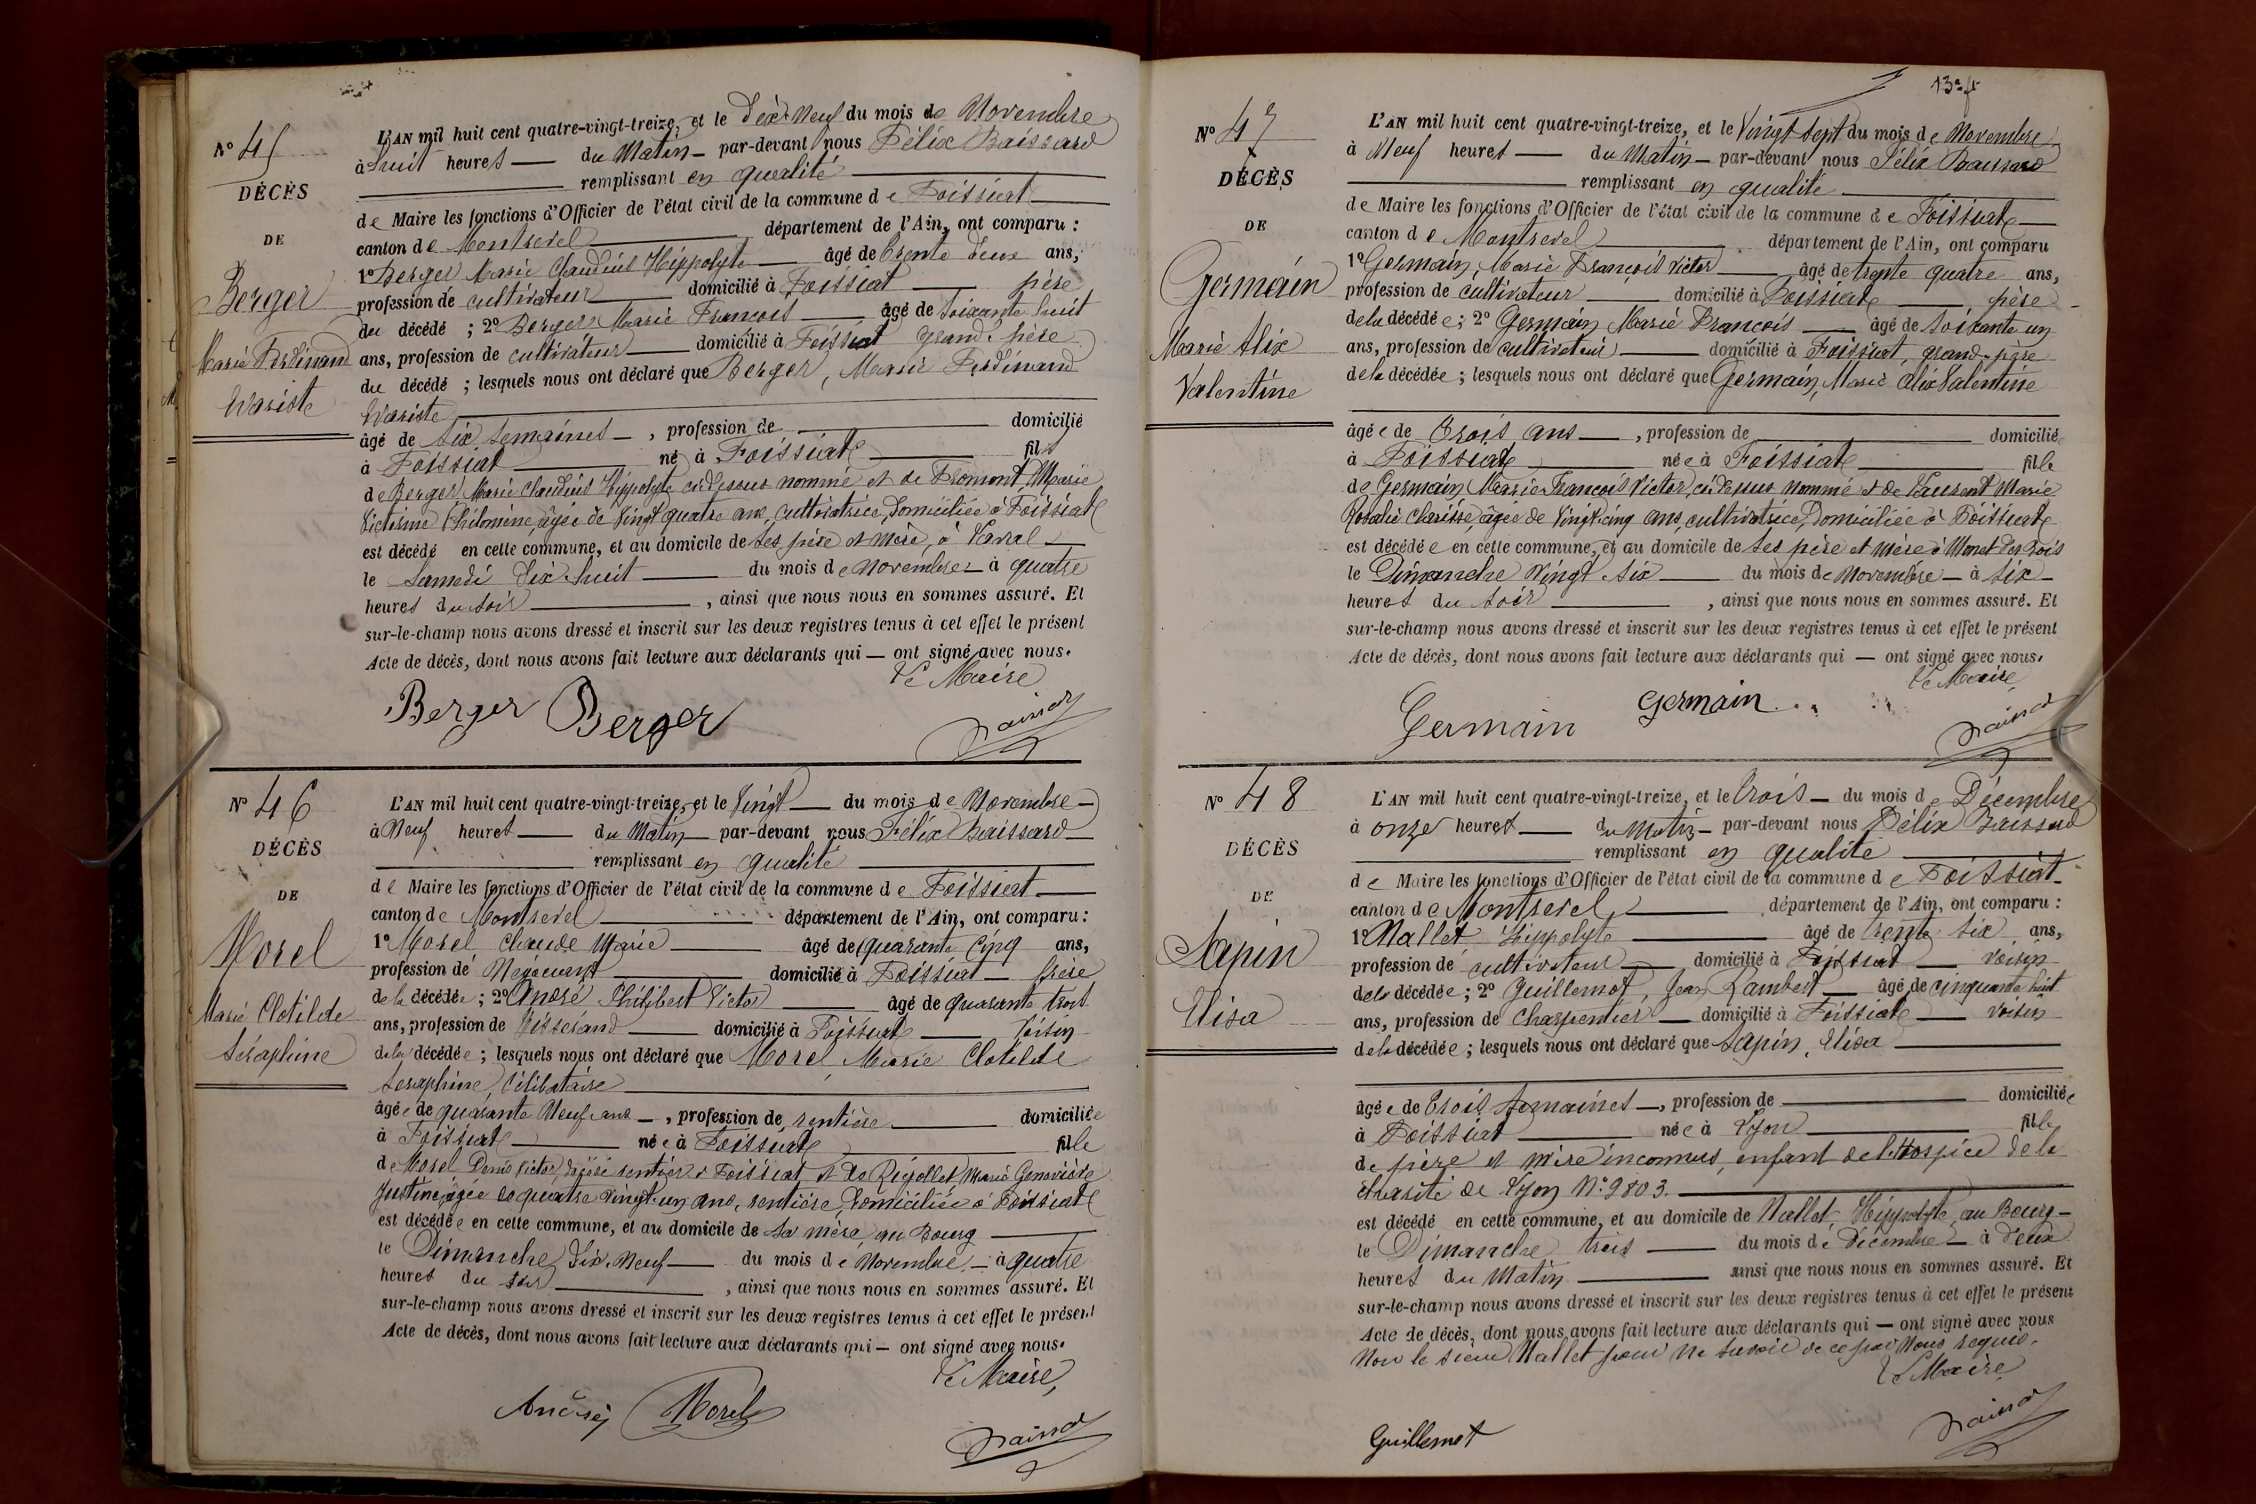 N° 45
DÉCÈS
DE
Berger
Marie Ferdinand
Evariste
L'AN mil huit cent quatre-vingt-treize, et le Dix Neuf du mois de Novembre
à huit heures du Matin par-devant nous Félix Baissard
remplissant en qualité
de Maire les fonctions d'Officier de l'état civil de la commune de Foissiat
canton de Montrevel département de l'Ain, ont comparu :
1° Berger Marie Claudius Hippolyte âgé de trente deux ans,
profession de cultivateur domicilié à Foissiat père
du décédé ; 2° Berger Marie François âgé de soixante huit
ans, profession de cultivateur domicilié à Foissiat grand-père
du décédé ; lesquels nous ont déclaré que Berger, Marie Ferdinand
Evariste
âgé de six semaines, profession de domicilié
à Foissiat né à Foissiat fils
de Berger Marie Claudius Hippolyte ci-dessus nommé et de Fromont Marie
Victorine Philomène, âgée de vingt quatre ans, cultivatrice, domiciliée à Foissiat
est décédé en cette commune, et au domicile de ses père et mère, à
le Samedi dix huit du mois de Novembre à quatre
heures du soir, ainsi que nous nous en sommes assuré. Et
sur-le-champ nous avons dressé et inscrit sur les deux registres tenus à cet effet le présent
Acte de décès, dont nous avons fait lecture aux déclarants qui — ont signé avec nous.
Le Maire
Berger Berger
Baissard
N° 46
DÉCÈS
DE
Morel
Marie Clotilde
Séraphine
L'AN mil huit cent quatre-vingt-treize, et le Vingt du mois de Novembre
à Neuf heures du Matin par-devant nous Félix Baissard
remplissant en qualité
de Maire les fonctions d'Officier de l'état civil de la commune de Foissiat
canton de Montrevel département de l'Ain, ont comparu :
1° Morel Claude Marie âgé de quarante cinq ans,
profession de Négociant domicilié à Foissiat frère
de la décédée ; 2° André Philibert Victor âgé de quarante trois
ans, profession de Tisserand domicilié à Foissiat Voisin
de la décédée ; lesquels nous ont déclaré que Morel Marie Clotilde
Seraphine, Célibataire
âgée de quarante Neuf ans, profession de rentière domiciliée
à Foissiat née à Foissiat fille
de Morel Denis Victor, décédé rentier à Foissiat, et de Rigollet Marie Geneviève
Justine, âgée de quatre vingt un ans, rentière, domiciliée à Foissiat
est décédée en cette commune, et au domicile de sa mère, au Bourg
le Dimanche dix-Neuf du mois de Novembre à quatre
heures du soir, ainsi que nous nous en sommes assuré. Et
sur-le-champ nous avons dressé et inscrit sur les deux registres tenus à cet effet le présent
Acte de décès, dont nous avons fait lecture aux déclarants qui — ont signé avec nous.
Le Maire,
André Morel
Baissard
N° 47
DÉCÈS
DE
Germain
Marie Alix
Valentine
L'AN mil huit cent quatre-vingt-treize, et le Vingt sept du mois de Novembre
à Neuf heures du Matin par-devant nous Félix Baissard
remplissant en qualité
de Maire les fonctions d'Officier de l'état civil de la commune de Foissiat
canton de Montrevel département de l'Ain, ont comparu
1° Germain, Marie François Victor âgé de trente quatre ans,
profession de cultivateur domicilié à Foissiat père
de la décédée ; 2° Germain Marie François âgé de soixante un
ans, profession de cultivateur domicilié à Foissiat, grand-père
de la décédée ; lesquels nous ont déclaré que Germain, Marie Alix Valentine
âgée de Trois ans, profession de domiciliée
à Foissiat née à Foissiat fille
de Germain Marie François Victor, ci-dessus nommé & de Laurent Marie
Rosalie Clarisse, âgée de vingt cinq ans, cultivatrice, domiciliée à Foissiat
est décédée en cette commune, et au domicile de ses père et mère à
le Dimanche Vingt six du mois de Novembre à six
heures du soir, ainsi que nous nous en sommes assuré. Et
sur-le-champ nous avons dressé et inscrit sur les deux registres tenus à cet effet le présent
Acte de décès, dont nous avons fait lecture aux déclarants qui — ont signé avec nous.
Le Maire
Germain Germain
Baissard
N° 48
DÉCÈS
DE
Sapin
Elisa
L'AN mil huit cent quatre-vingt-treize, et le trois du mois de Décembre
à onze heures du Matin par-devant nous Félix Baissard
remplissant en qualité
de Maire les fonctions d'Officier de l'état civil de la commune de Foissiat
canton de Montrevel département de l'Ain, ont comparu :
1° Nallet Hippolyte âgé de trente six ans,
profession de cultivateur domicilié à Foissiat Voisin
de la décédée ; 2° Guillemot, Jean Lambert âgé de cinquante huit
ans, profession de Charpentier domicilié à Foissiat Voisin
de la décédée ; lesquels nous ont déclaré que Sapin, Elisa
âgée de trois semaines, profession de domiciliée
à Foissiat née à Lyon fille
de père et mère inconnus, enfant de l'Hospice de la
charité de Lyon N° 9803.
est décédé en cette commune, et au domicile de Nallet Hippolyte, au Bourg
le Dimanche trois du mois de Décembre à deux
heures du Matin ainsi que nous nous en sommes assuré. Et
sur-le-champ nous avons dressé et inscrit sur les deux registres tenus à cet effet le présent
Acte de décès, dont nous avons fait lecture aux déclarants qui — ont signé avec nous
Non le sieur Nallet pour ne savoir de ce par Nous requis.
Le Maire
Guillemot
Baissard